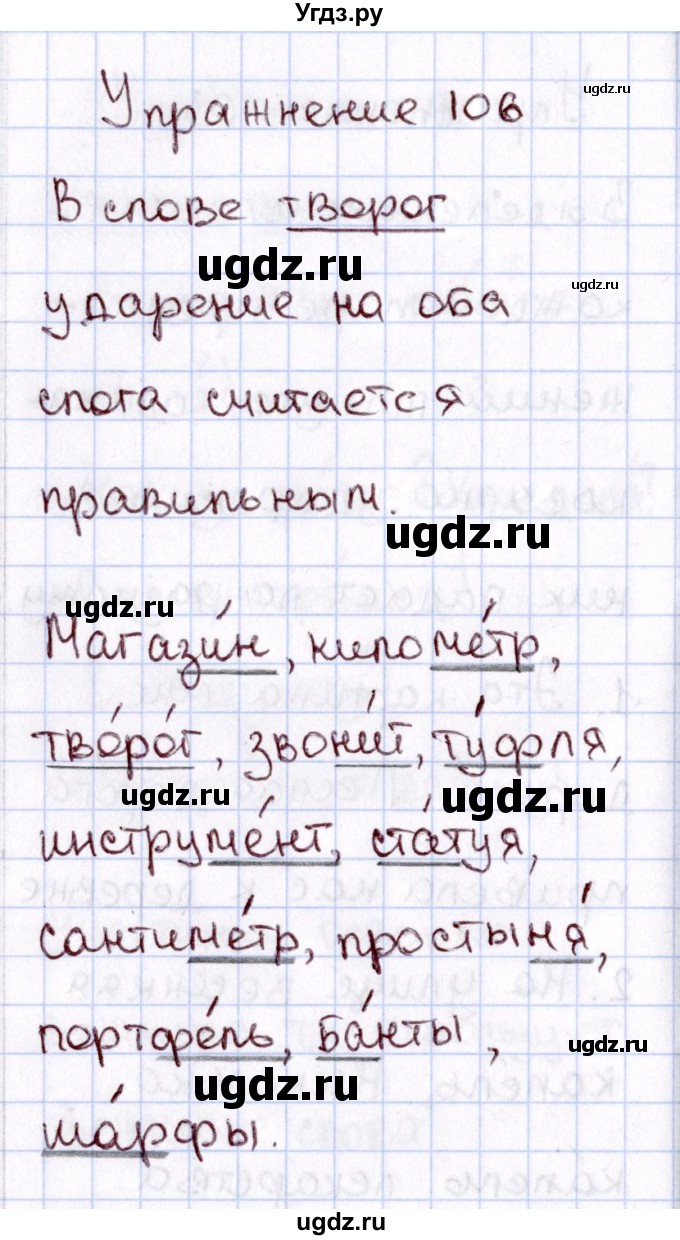 Угдз.ру
ugdz.ru
Упражнение 106
В слове творог
ugdz.ru
ugdz.ru
ударение на оба
слога считается
правильным.
ugdz.ru
ugdz.ru
Магази́н, киломе́тр,
тво́ро́г, звони́т, ту́фля,
ugdz.ru
ugdz.ru
инструме́нт, ста́туя,
сантиме́тр, простыня́,
портфе́ль, ба́нты,
ugdz.ru
ugdz.ru
ша́рфы.
ugdz.ru